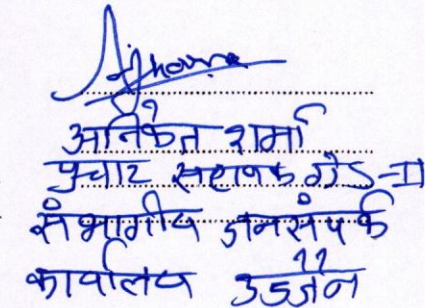 अनिकेत शर्मा
प्रचार सहायक ग्रेड-II
संभागीय जनसंपर्क
कार्यालय उज्जैन